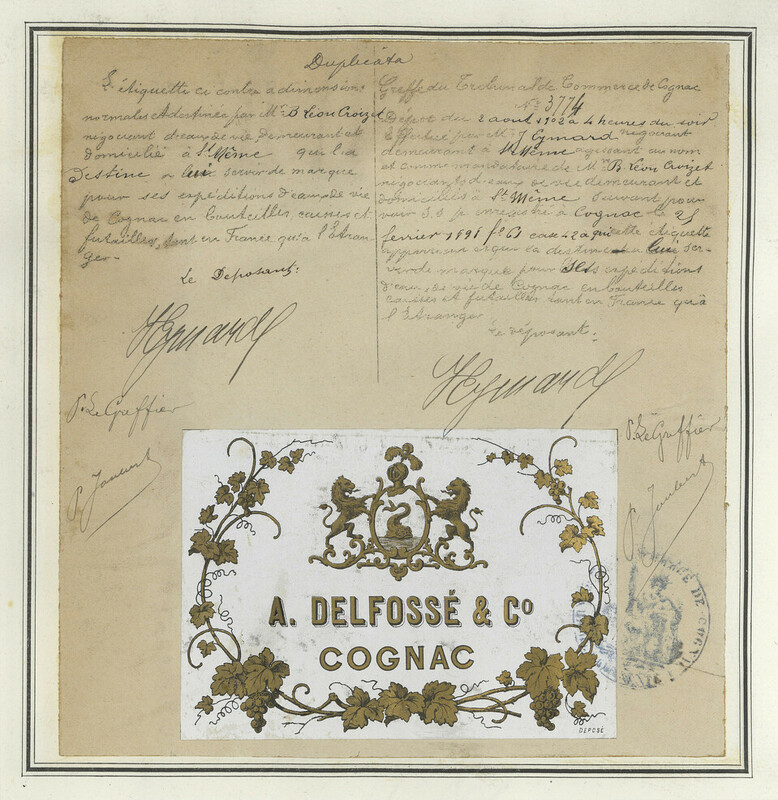 Duplicata
L'étiquette ci contre a dimensions
normales est destinée par Mr B Léon Croizet
négociant d'eau de vie, demeurant et
domicilié à St Même qui l'a
Destine a lui servir de marque
pour ses expéditions d'eau de vie
de Cognac en bouteilles caisses et
futailles, tant en France qu'à l'Etran
ger-
Le Déposant:
JEymard
P. Le Greffier
P. Joubert
Greffe du Tribunal de Commerce de Cognac
No 3774
Dépôt du 2 aout 1902 à 4 heures du soir
Effectué par Mr J Eymard négociant
demeurant à St Même agissant au nom
et comme mandataire de Mr B. Léon Croizet
négociant d'eau de vie demeurant et
domicilié à St Même Suivant pou-
voir S.S.P. enregistré à Cognac le 25
fevrier 1898 fo 61 case 42 à qui cette étiquette
appartient et qui la destine a lui ser-
vir de marque pour ses expéditions
d'eau de vie de Cognac en bouteilles
caisses et futailles tant en France qu'à
l'Etranger
Le déposant:
JEymard
P. Le Greffier
P. Joubert
A. DELFOSSÉ & Co
COGNAC
DEPOSÉ
COMMERCE DE COGNAC